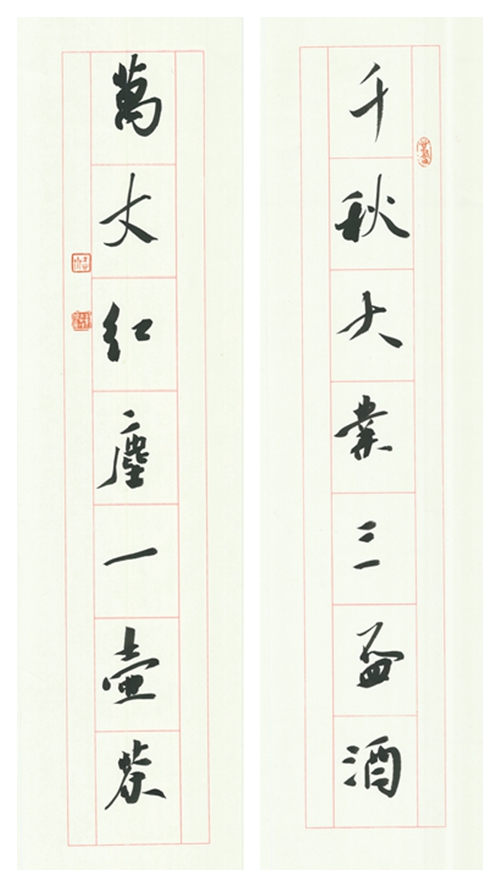 千秋大業三盃酒
萬丈紅塵一壺茶